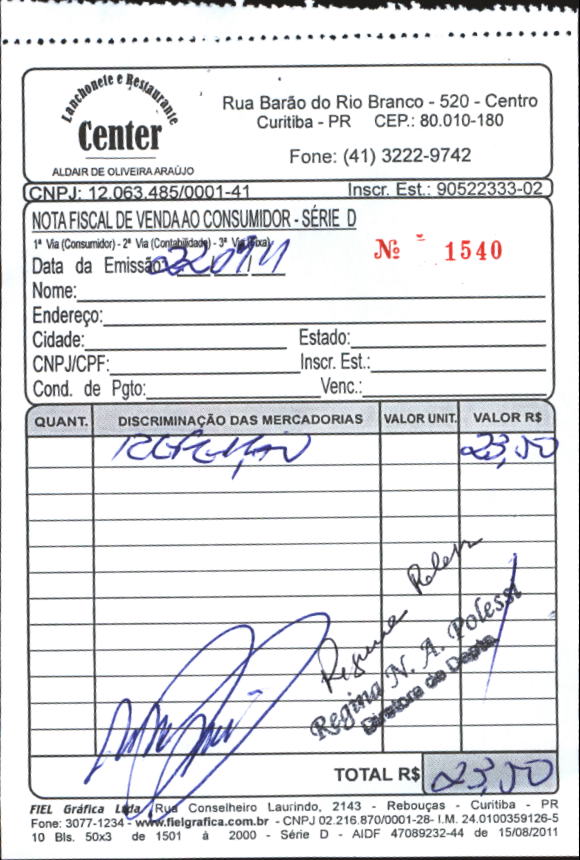 Lanchonete e Restaurante
Center
ALDAIR DE OLIVEIRA ARAÚJO
Rua Barão do Rio Branco - 520 - Centro
Curitiba - PR CEP.: 80.010-180
Fone: (41) 3222-9742
CNPJ: 12.063.485/0001-41 Inscr. Est.: 90522333-02
NOTA FISCAL DE VENDA AO CONSUMIDOR - SÉRIE D
1ª Via (Consumidor) - 2ª Via (Contabilidade) - 3ª Via (Fixa)
Nº 1540
Data da Emissão:
Nome:
Endereço:
Cidade: Estado:
CNPJ/CPF: Inscr. Est.:
Cond. de Pgto: Venc.:
QUANT. DISCRIMINAÇÃO DAS MERCADORIAS VALOR UNIT. VALOR R$
REFEIÇÃO 23,00
Regina N. A. Polessi
Diretora de Depto
TOTAL R$ 23,00
FIEL Gráfica Ltda Rua Conselheiro Laurindo, 2143 - Rebouças - Curitiba - PR
Fone: 3077-1234 - www.fielgrafica.com.br - CNPJ 02.216.870/0001-28- I.M. 24.0100359126-5
10 Bls. 50x3 de 1501 à 2000 - Série D - AIDF 47089232-44 de 15/08/2011